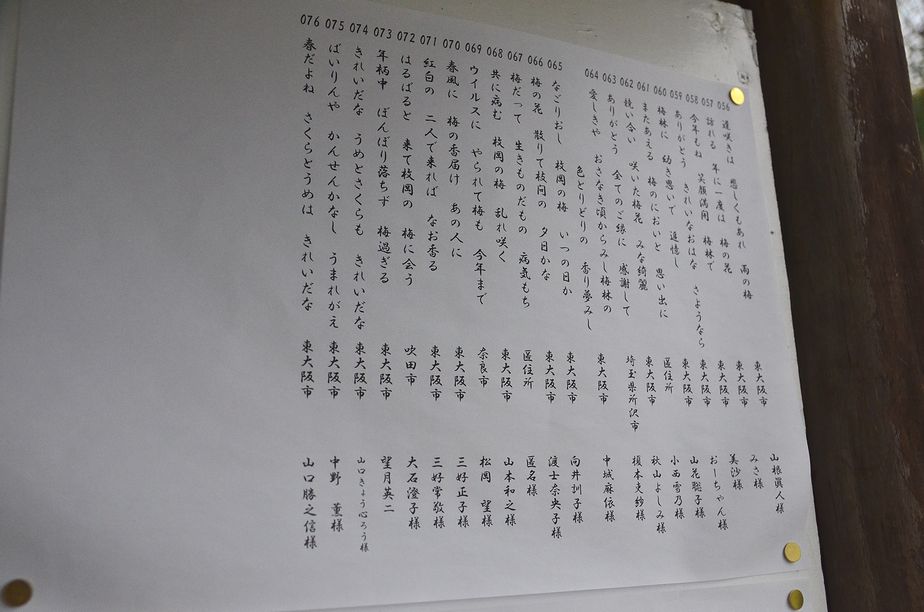 056 遅咲きは 悲しくもあれ 雨の梅 東大阪市 山根眞人様
057 訪れる 年に一度は 梅の花 東大阪市 みさ様
058 今年もね 笑顔満開 梅林で 東大阪市 美沙様
059 ありがとう きれいなおはな さようなら 東大阪市 おーちゃん様
060 梅林に 幼き思いで 追憶し 東大阪市 山花聡子様
061 またあえる 梅のにおいと 思い出に 区住所 小西雪乃様
062 競い合い 咲いた梅花 みな綺麗 東大阪市 秋山よしみ様
063 ありがとう 全てのご縁に 感謝して 埼玉県所沢市 榎本文紗様
064 愛しきや おさなき頃からみし梅林の 色とりどりの 香り夢みし 東大阪市 中城麻依様
065 なごりおし 枚岡の梅 いつの日か 東大阪市 向井訓子様
066 梅の花 散りて枚岡の 夕日かな 東大阪市 渡士奈央子様
067 梅だって 生きものだもの 病気もち 区住所 匿名様
068 共に病む 枚岡の梅 乱れ咲く 東大阪市 山本和之様
069 ウイルスに やられて梅も 今年まで 奈良市 松岡 望様
070 春風に 梅の香届け あの人に 東大阪市 三好正子様
071 紅白の 二人で来れば なお香る 東大阪市 三好常敬様
072 はるばると 来て枚岡の 梅に会う 吹田市 大石澄子様
073 年柄中 ぼんぼり落ちず 梅過ぎる 東大阪市 望月英二
074 きれいだな うめとさくらも きれいだな 東大阪市 山口きょう心ろう様
075 ばいりんや かんせんかなし うまれがえ 東大阪市 中野 菫様
076 春だよね さくらとうめは きれいだな 東大阪市 山口勝之信様